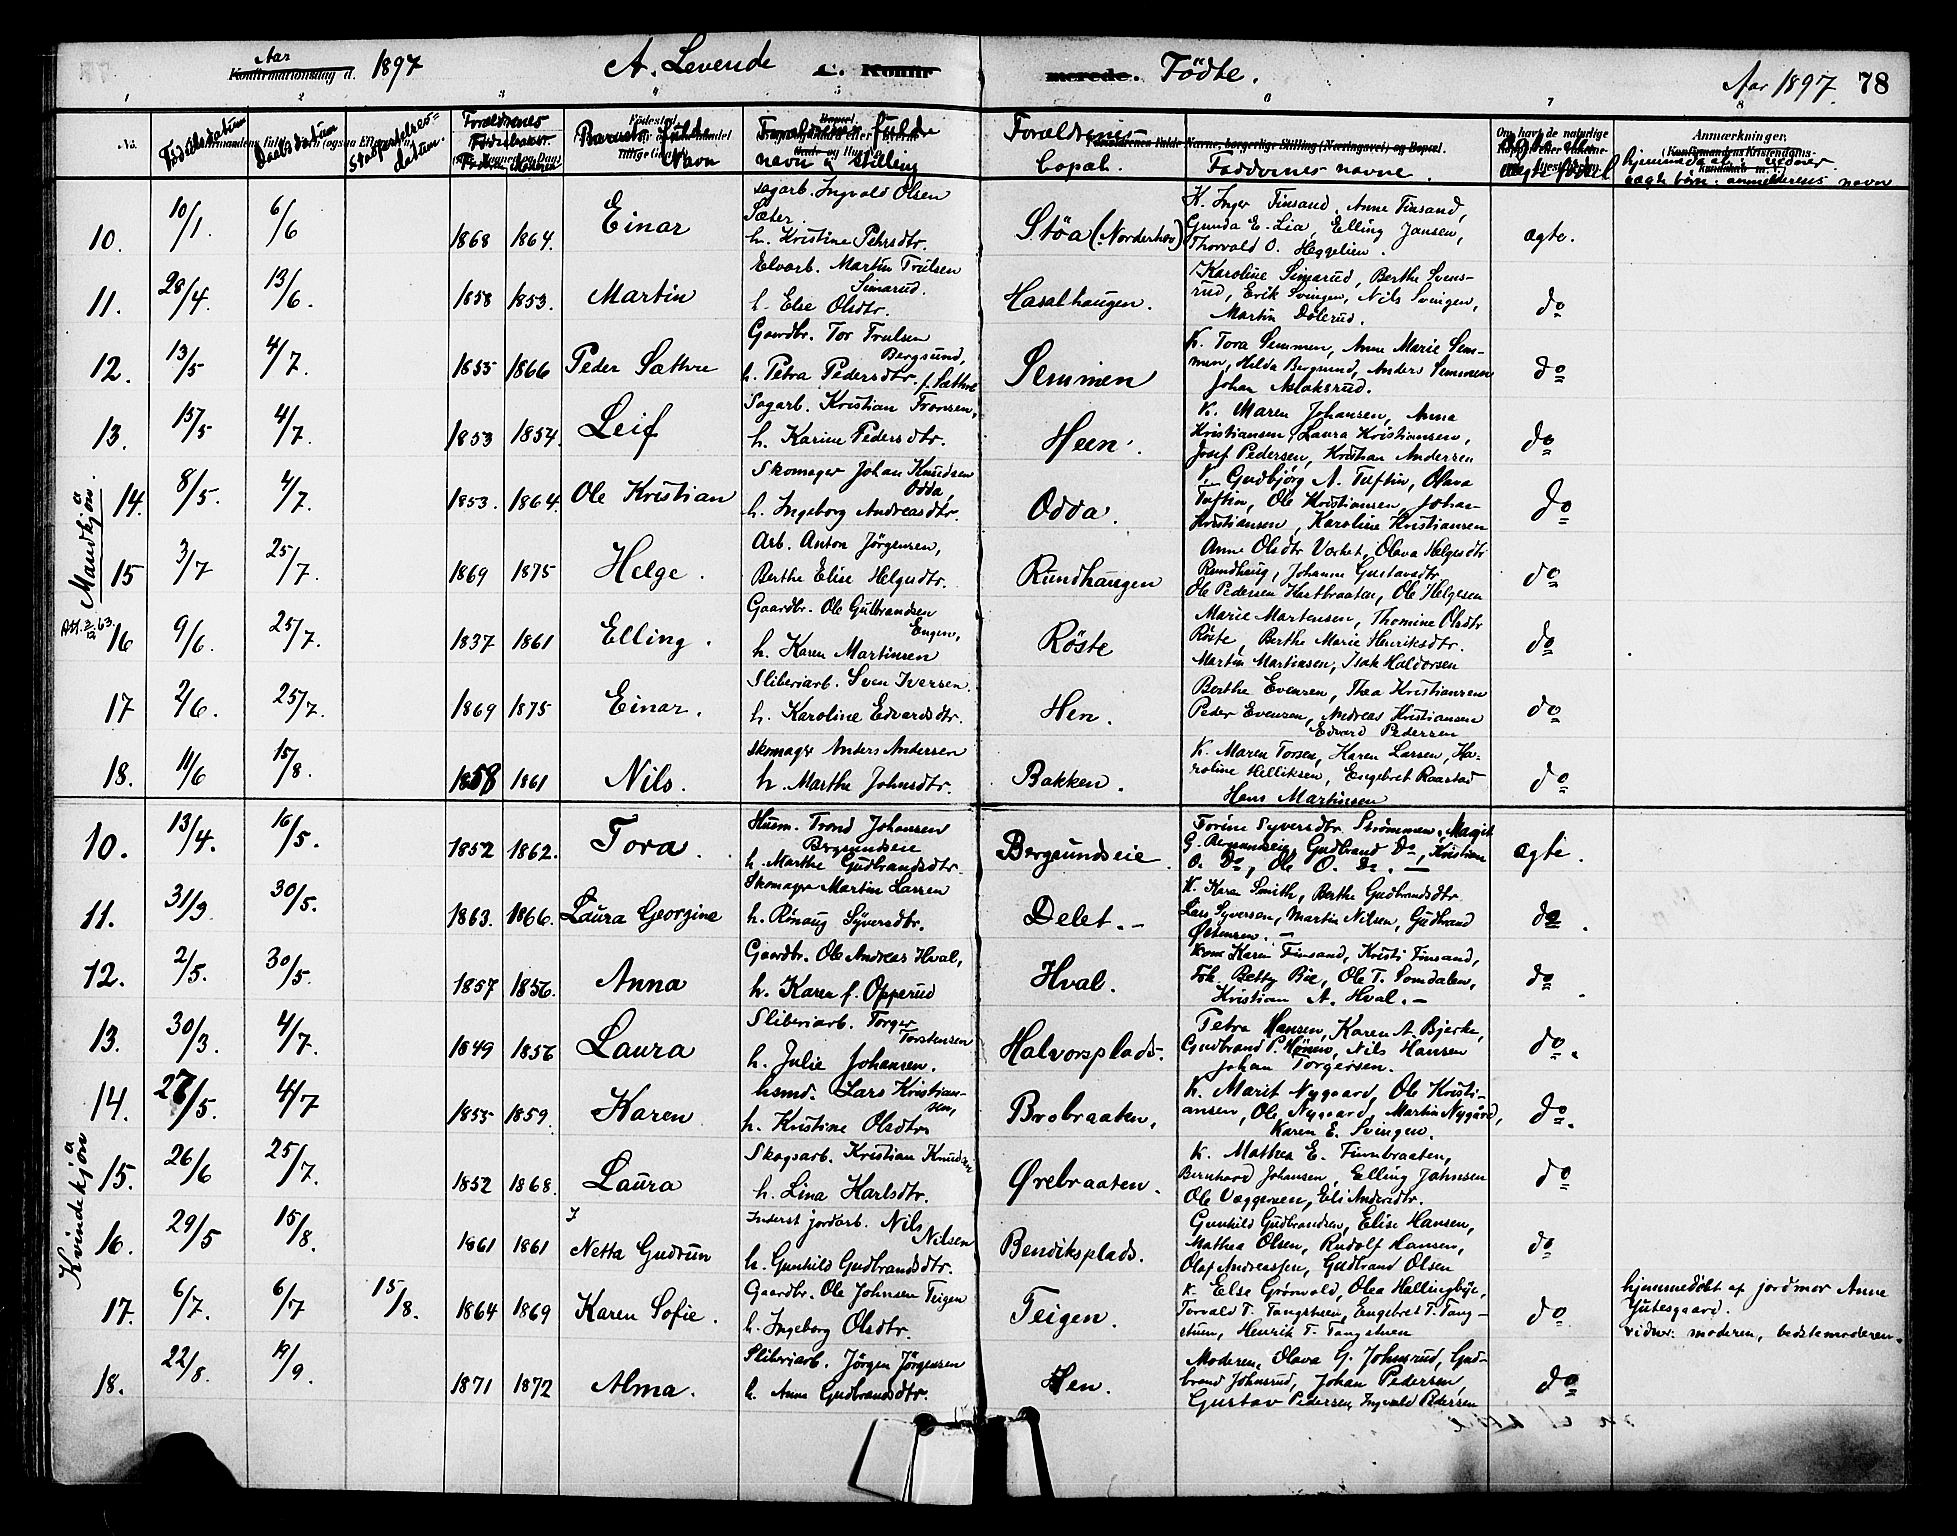 Aar 1897 A. Levende C. Konfirmerede. Födte. Aar 1897. 78
Konfirmationsdag d.
No. Födselsdatum Daabsdatum Forældrenes Födselsaar Barnets fulde Navn Forældrenes fulde navn & Stilling Forældrenes bopæl. Faddernes navne.
Anmærkninger.
Mandkjön.
10. 10/1 6/6 1868 1864. Einar
sagarb. Ingvald Olsen
Sæter.
h. Kristine Pehrsdtr.
Stöa (Norderhov)
K. Inger Finsand, Anne Finsand,
Gunda E. Lia, Elling Jansen,
Thorvald O. Heggelien.
ægte.
11. 28/4. 13/6. 1858 1853. Martin
Elvarb. Martin Trulsen
Simarud.
h. Else Olsdtr.
Hasalhaugen.
Karoline Simarud, Berthe Svens-
rud, Erik Svingen, Nils Svingen,
Martin Dölerud.
do
12. 13/5 4/7. 1855 1866 Peder Sæthre
Gaardbr. Tor Trulsen
Bergsund,
h. Petra Pedersdtr. f. Sæthre
Semmen
K. Tora Semmen, Anne Marie Sem-
men, Hilda Bergsund, Anders Semmen
Johan Aslaksrud.
do
13. 15/5 4/7. 1853 1854. Leif
Sagarb. Kristian Fransen,
h. Karine Pedersdtr.
Heen.
K. Maren Johansen, Anna
Kristiansen, Laura Kristiansen,
Josef Pedersen, Kristian Andersen
do
14. 8/5. 4/7. 1853. 1864. Ole Kristian
Skomager Johan Knudsen
Odda,
h. Ingeborg Andreasdtr.
Odda.
K. Gudbjörg A. Tuftin, Olava
Tuftin, Ole Kristiansen, Johan
Kristiansen, Karoline Kristiansen
do
15 3/7 25/7. 1869 1875 Helge.
Arb. Anton Jörgensen,
Berthe Elise Helgesdtr.
Rundhaugen
Anne Olsdtr Vætet, Olava Helgesdtr
Rundhaug, Johanne Gustavsdtr
Ole Pedersen Kertbraaten, Ole Helgesen
do
Att. 3/12 63. 16 9/6. 25/7. 1837 1861 Elling.
Gaardbr. Ole Gulbrandsen
Engen,
h. Karen Martinsen
Röste
Marie Martensen, Thomine Olsdtr
Röste, Berthe Marie Henriksdtr.
Martin Martinsen, Isak Haldorsen
do
17 2/6. 25/7. 1869 1875 Einar.
Sliberiarb. Sven Iversen.
h. Karoline Edvardsdtr.
Hen.
Berthe Evensen, Thea Kristiansen
Peder Evensen, Andreas Kristiansen
Edvard Pedersen
do
18. 11/6 15/8. 1858 1861 Nils.
Skomager Anders Andersen
h. Marthe Johnsdtr.
Bakken.
K. Maren Torsen, Karen Larsen, Ka-
roline Helliksen, Engebret Raastad
Hans Martinsen
do
Kvindekjön
10. 13/4. 16/5. 1852 1862. Tora.
Husm. Trond Johansen
Bergsundseie
h. Marthe Gudbrandsdtr.
Bergsundseie
Torine Syversdtr. Strömmen, Magit
G. Bergsundseie, Gudbrand Do, Kristian
O. Do, Ole O. Do. —
ægte.
11. 31/3 30/5. 1863. 1866. Laura Georgine
Skomager Martin Larsen
h. Rönaug Syversdtr.
Delet. —
K. Kara Smith, Berthe Gudbrandsdtr
Lars Syversen, Martin Nilsen, Gudbrand
Østensen. —
do.
12. 2/5. 30/5. 1857 1856. Anna
Gaardbr. Ole Andreas Hval,
h. Karen f. Opperud
Hval.
Kone Karen Finsand, Kristi Finsand,
Frk. Betty Bie, Ole T. Somdalen,
Kristian A. Hval. —
do.
13. 30/3. 4/7. 1849 1856 Laura
Sliberiarb. Torger
Torstensen
h. Julie Johansen.
Halvorsplads.
Petra Hansen, Karen A. Bjerke,
Gudbrand P. Hönen, Nils Hansen
Johan Torgersen.
do.
14. 27/5. 4/7 1855 1859. Karen
hsmd. Lars Kristian-
sen,
h. Kristine Olsdtr
Brobraaten.
K. Marit Nygaard, Ole Kristi-
ansen, Ole Nygaard, Martin Nygård,
Karen E. Svingen.
do.
15. 26/6 25/7. 1852 1868. Laura
Skogsarb. Kristian Knudsen
h. Lina Karlsdtr.
Ørebraaten.
K. Mathea E. Finnbraaten,
Bernhard Johansen, Elling Jahnsen
Ole Vaggersen, Eli Andersdtr.
do
16. 29/5 15/8. 1861 1861 Netta Gudrun
Inderst jordarb. Nils
Nilsen
h. Gunhild Gudbrandsdtr.
Bendiksplads.
Gunhild Gudbrandsen, Elise Hansen,
Mathea Olsen, Rudolf Hansen,
Olaf Andreassen, Gudbrand Olsen
do
17. 6/7. 6/7 15/8. 1864 1869 Karen Sofie.
Gaardbr. Ole Johnsen Teigen
h. Ingeborg Olsdtr.
Teigen.
K. Else Grönvold, Olea Hallingbye,
Torvald T. Tangstuen, Engebret T. Tang-
stuen, Henrik T. Tangstuen
do
hjemmedöbt af jordmor Anne
Gutesgaard.
vidner: moderen, bedstemoderen.
18. 22/8. 19/9. 1871 1872 Alma.
Sliberiarb. Jörgen Jörgensen
h. Anne Gudbrandsdtr.
Hen.
Moderen, Olava G. Johnsrud, Gud-
brand Johnsrud, Johan Pedersen,
Gustav Pedersen, Ingvald Pedersen
do